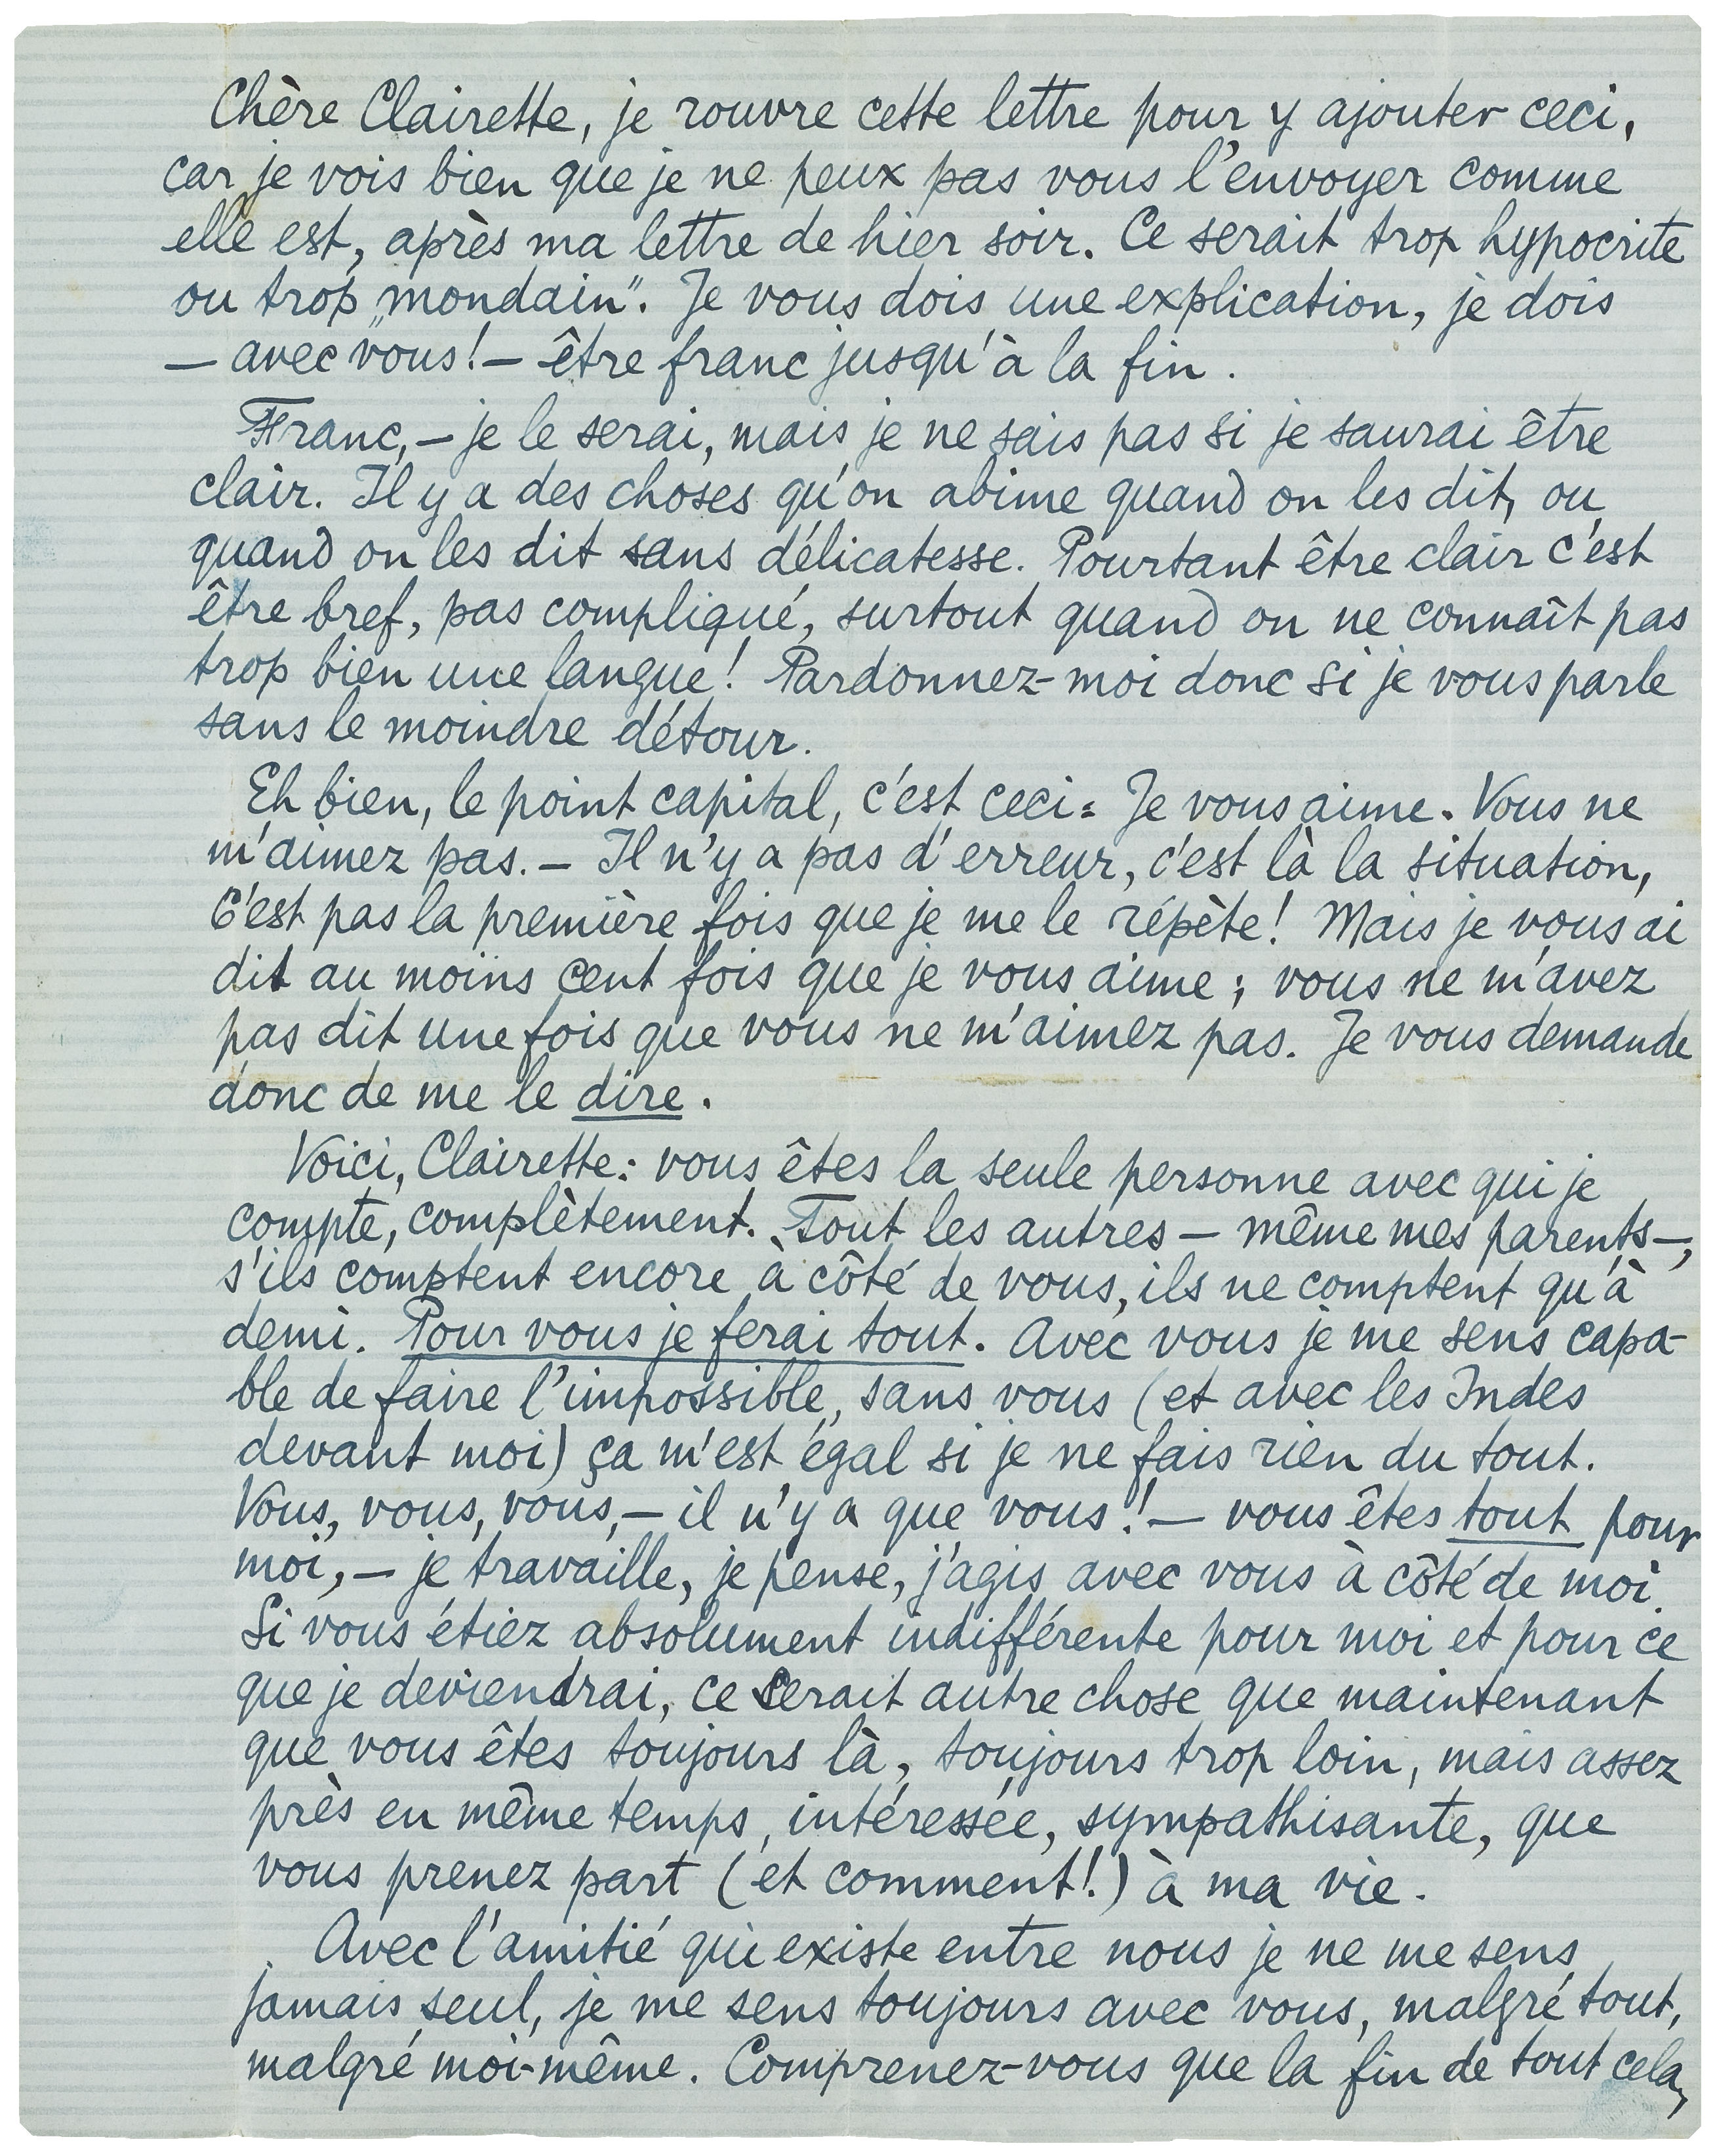 Chère Clairette, je rouvre cette lettre pour y ajouter ceci,
car je vois bien que je ne peux pas vous l'envoyer comme
elle est, après ma lettre de hier soir. Ce serait trop hypocrite
ou trop „mondain". Je vous dois une explication, je dois
— avec vous! — être franc jusqu'à la fin.
Franc, — je le serai, mais je ne sais pas si je saurai être
clair. Il y a des choses qu'on abime quand on les dit, ou
quand on les dit sans délicatesse. Pourtant être clair c'est
être bref, pas compliqué, surtout quand on ne connaît pas
trop bien une langue! Pardonnez-moi donc si je vous parle
sans le moindre détour.
Eh bien, le point capital, c'est ceci: Je vous aime. Vous ne
m'aimez pas. — Il n'y a pas d'erreur, c'est là la situation,
C'est pas la première fois que je me le répète! Mais je vous ai
dit au moins cent fois que je vous aime; vous ne m'avez
pas dit une fois que vous ne m'aimez pas. Je vous demande
donc de me le dire.
Voici, Clairette: vous êtes la seule personne avec qui je
compte, complètement. Tout les autres — même mes parents —,
s'ils comptent encore à côté de vous, ils ne comptent qu'à
demi. Pour vous je ferai tout. Avec vous je me sens capa-
ble de faire l'impossible, sans vous (et avec les Indes
devant moi) ça m'est égal si je ne fais rien du tout.
Vous, vous, vous, — il n'y a que vous! — vous êtes tout pour
moi, — je travaille, je pense, j'agis avec vous à côté de moi.
Si vous étiez absolument indifférente pour moi et pour ce
que je deviendrai, ce serait autre chose que maintenant
que vous êtes toujours là, toujours trop loin, mais assez
près en même temps, intéressée, sympathisante, que
vous prenez part (et comment!) à ma vie.
Avec l'amitié qui existe entre nous je ne me sens
jamais seul, je me sens toujours avec vous, malgré tout,
malgré moi-même. Comprenez-vous que la fin de tout cela,